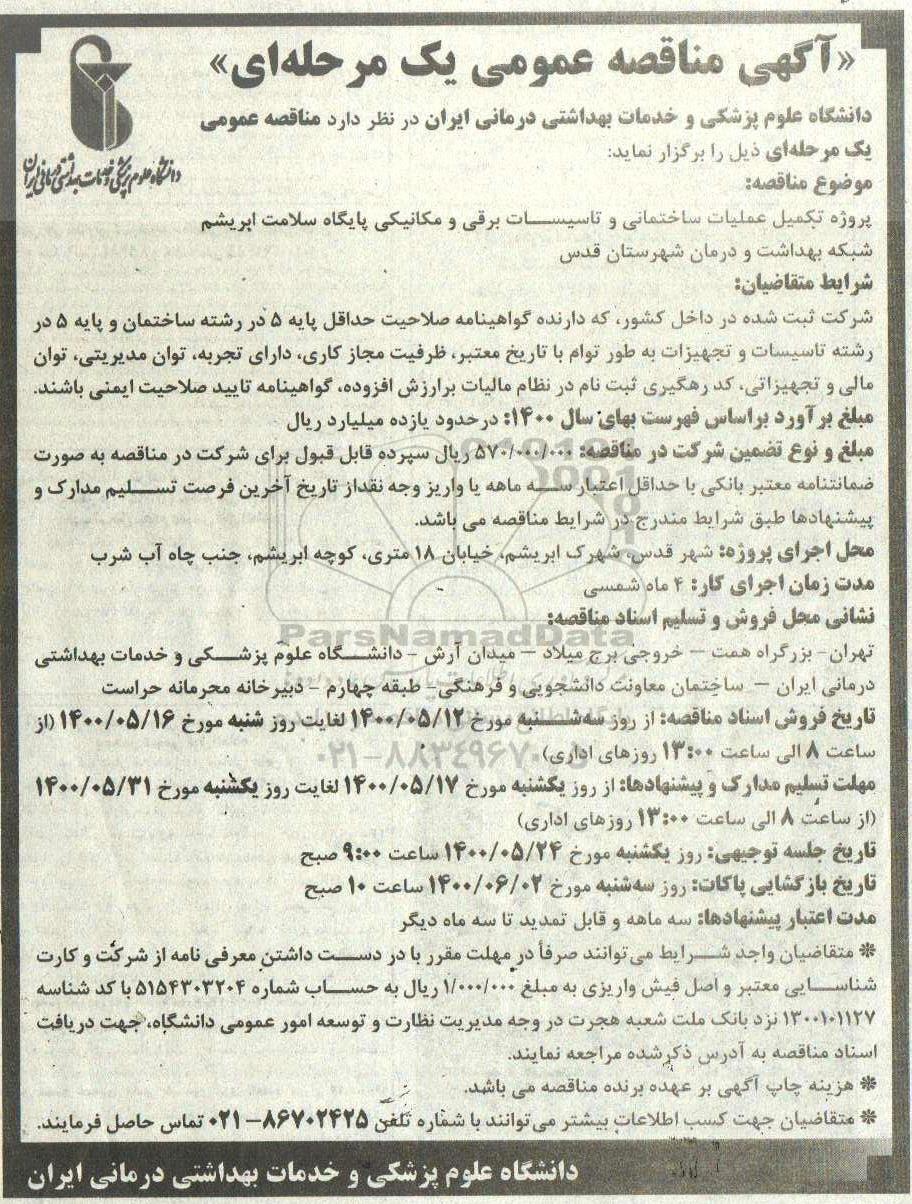 «آگهی مناقصه عمومی یک مرحله‌ای»
دانشگاه علوم پزشکی و خدمات بهداشتی درمانی ایران
دانشگاه علوم پزشکی و خدمات بهداشتی درمانی ایران در نظر دارد مناقصه عمومی
یک مرحله‌ای ذیل را برگزار نماید:
موضوع مناقصه:
پروژه تکمیل عملیات ساختمانی و تاسیسات برقی و مکانیکی پایگاه سلامت ابریشم
شبکه بهداشت و درمان شهرستان قدس
شرایط متقاضیان:
شرکت ثبت شده در داخل کشور، که دارنده گواهینامه صلاحیت حداقل پایه ۵ در رشته ساختمان و پایه ۵ در
رشته تاسیسات و تجهیزات به طور توام با تاریخ معتبر، ظرفیت مجاز کاری، دارای تجربه، توان مدیریتی، توان
مالی و تجهیزاتی، کد رهگیری ثبت نام در نظام مالیات برارزش افزوده، گواهینامه تایید صلاحیت ایمنی باشند.
مبلغ برآورد براساس فهرست بهای سال ۱۴۰۰: درحدود یازده میلیارد ریال
مبلغ و نوع تضمین شرکت در مناقصه: ۵۷۰/۰۰۰/۰۰۰ ریال سپرده قابل قبول برای شرکت در مناقصه به صورت
ضمانتنامه معتبر بانکی با حداقل اعتبار سه ماهه یا واریز وجه نقداز تاریخ آخرین فرصت تسلیم مدارک و
پیشنهادها طبق شرایط مندرج در شرایط مناقصه می باشد.
محل اجرای پروژه: شهر قدس، شهرک ابریشم، خیابان ۱۸ متری، کوچه ابریشم، جنب چاه آب شرب
مدت زمان اجرای کار: ۴ ماه شمسی
نشانی محل فروش و تسلیم اسناد مناقصه:
تهران- بزرگراه همت – خروجی برج میلاد – میدان آرش - دانشگاه علوم پزشکی و خدمات بهداشتی
درمانی ایران – ساختمان معاونت دانشجویی و فرهنگی- طبقه چهارم - دبیرخانه محرمانه حراست
تاریخ فروش اسناد مناقصه: از روز سه‌شنبه مورخ ۱۴۰۰/۰۵/۱۲ لغایت روز شنبه مورخ ۱۴۰۰/۰۵/۱۶ (از
ساعت ۸ الی ساعت ۱۳:۰۰ روزهای اداری)
مهلت تسلیم مدارک و پیشنهادها: از روز یکشنبه مورخ ۱۴۰۰/۰۵/۱۷ لغایت روز یکشنبه مورخ ۱۴۰۰/۰۵/۳۱
(از ساعت ۸ الی ساعت ۱۳:۰۰ روزهای اداری)
تاریخ جلسه توجیهی: روز یکشنبه مورخ ۱۴۰۰/۰۵/۲۴ ساعت ۹:۰۰ صبح
تاریخ بازگشایی پاکات: روز سه‌شنبه مورخ ۱۴۰۰/۰۶/۰۲ ساعت ۱۰ صبح
مدت اعتبار پیشنهادها: سه ماهه و قابل تمدید تا سه ماه دیگر
* متقاضیان واجد شرایط می‌توانند صرفاً در مهلت مقرر با در دست داشتن معرفی نامه از شرکت و کارت
شناسایی معتبر و اصل فیش واریزی به مبلغ ۱/۰۰۰/۰۰۰ ریال به حساب شماره ۵۱۵۴۳۰۳۲۰۴ با کد شناسه
۱۳۰۰۱۰۱۱۲۷ نزد بانک ملت شعبه هجرت در وجه مدیریت نظارت و توسعه امور عمومی دانشگاه، جهت دریافت
اسناد مناقصه به آدرس ذکرشده مراجعه نمایند.
* هزینه چاپ آگهی بر عهده برنده مناقصه می باشد.
* متقاضیان جهت کسب اطلاعات بیشتر می‌توانند با شماره تلفن ۸۶۷۰۲۴۲۵-۰۲۱ تماس حاصل فرمایند.
دانشگاه علوم پزشکی و خدمات بهداشتی درمانی ایران
ParsNamadData
۰۲۱-۸۸۳۴۹۶۷۰